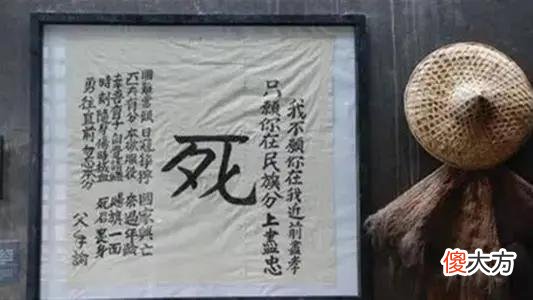 我不願你在我近前盡孝
只願你在民族分上盡忠
死
國難當頭 日寇猙獰 國家興亡
匹夫有分 本欲服役 奈過年齡
幸吾有子 自覺請纓 賜旗一面
時刻隨身 傷時拭血 死后裹身
勇往直前 勿忘本分
父手諭
傻大方